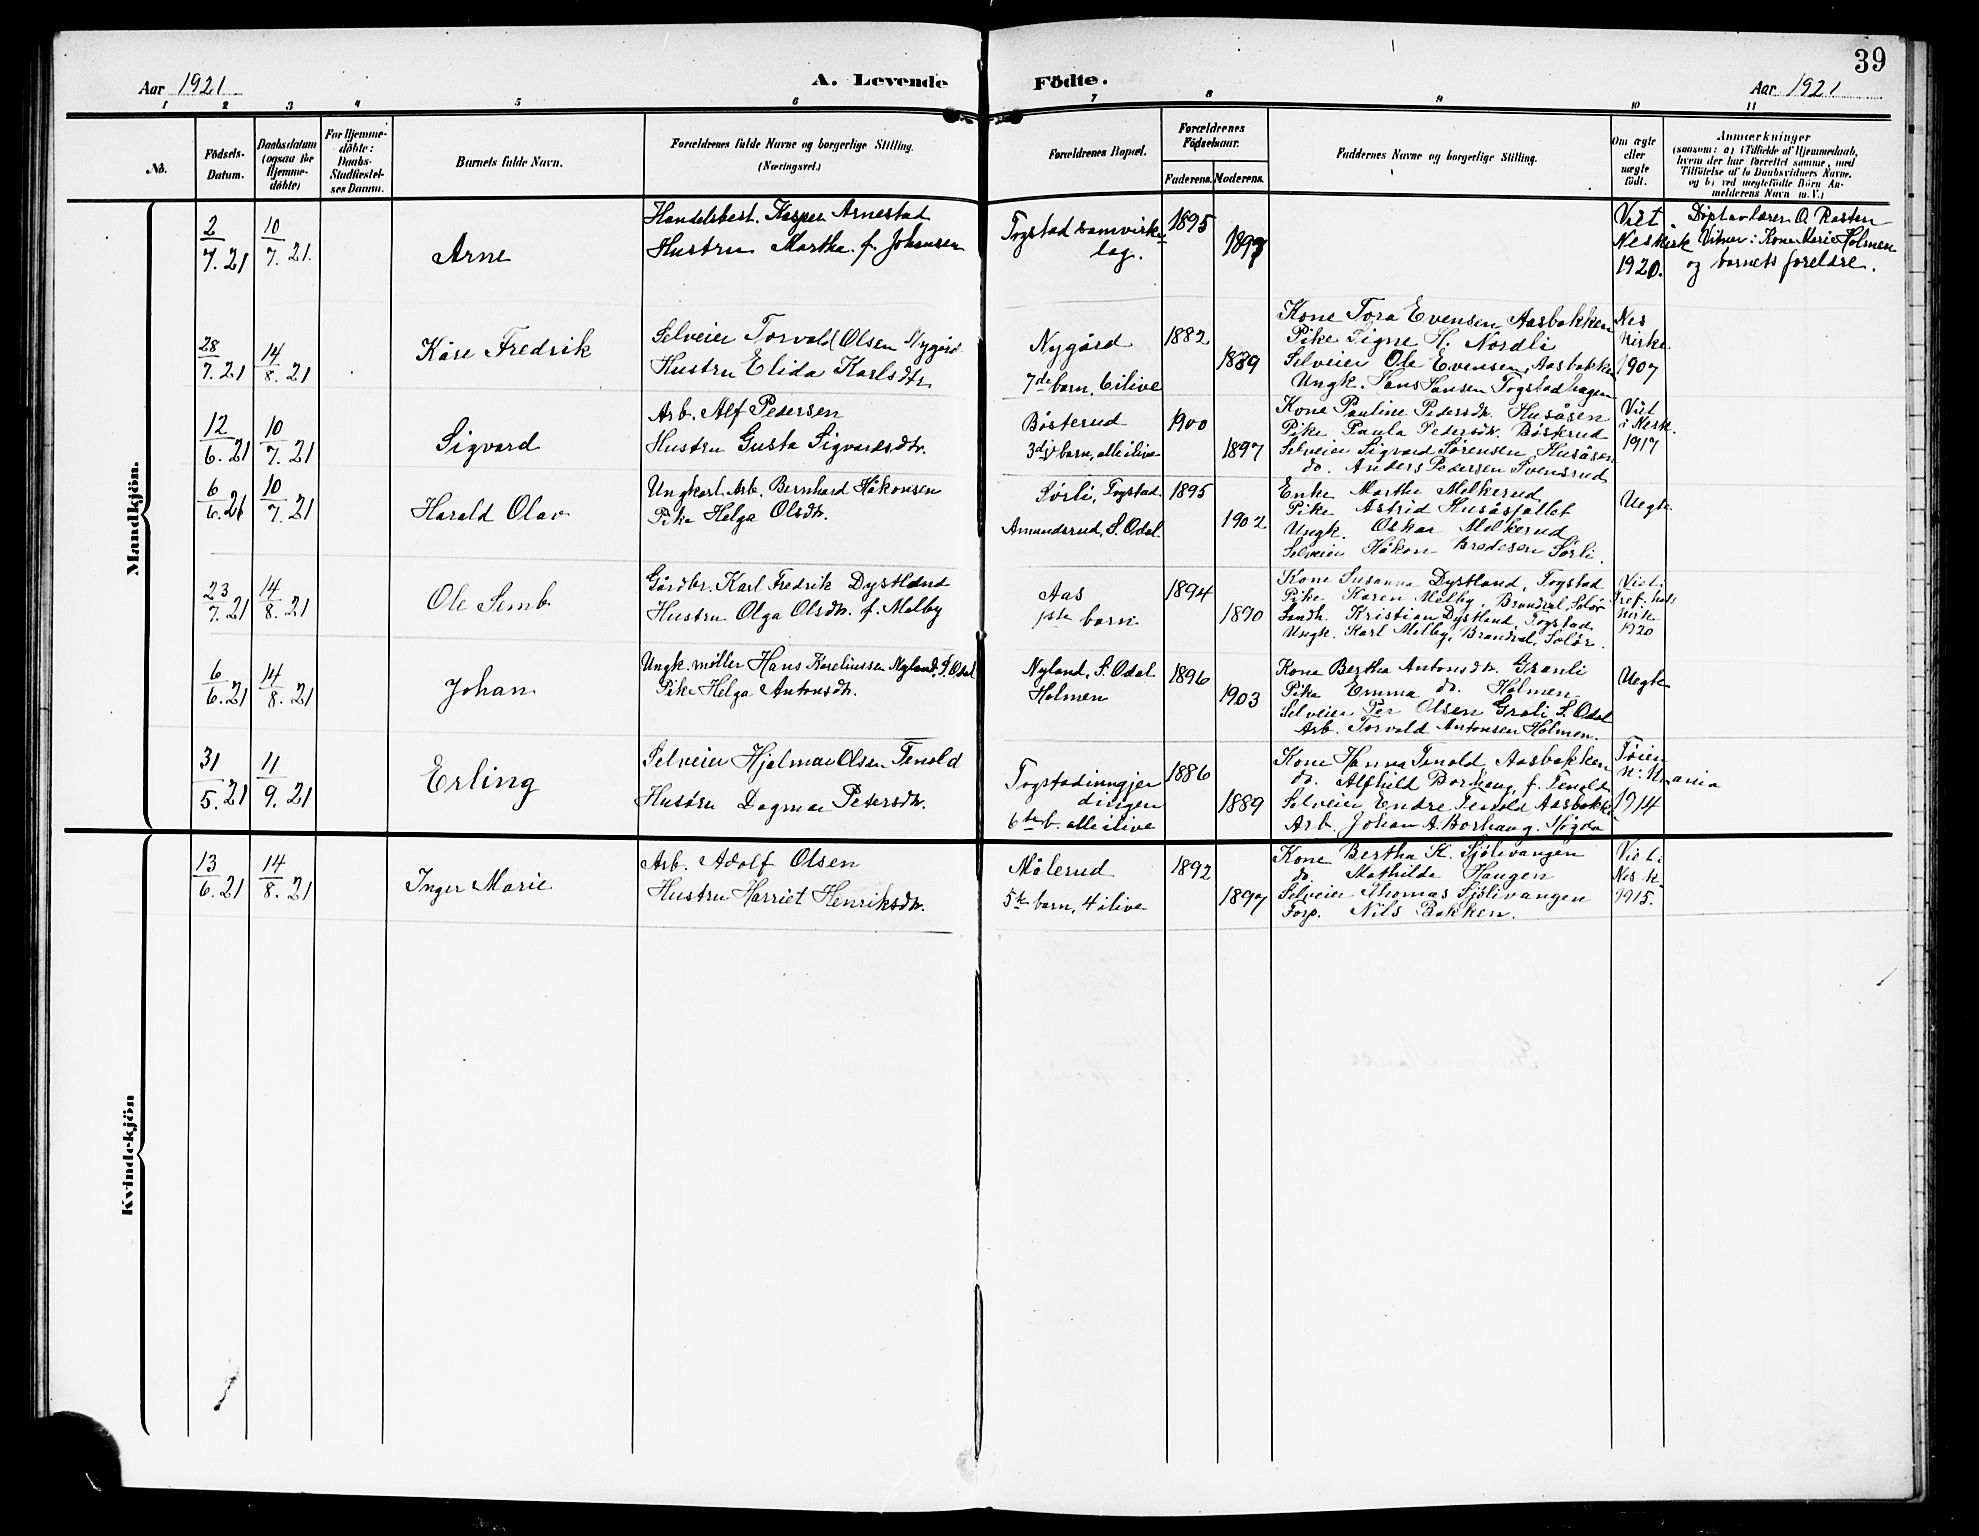 39
Aar 1921
A. Levende Födte.
Aar 1921
1 2 3 4 5 6 7 8 9 10 11
No.
Födsels-
Datum.
Daabsdatum
(ogsaa for
Hjemme-
döbte)
For Hjemme-
döbte:
Daabs-
Stadfæstel-
ses Datum.
Barnets fulde Navn.
Forældrenes fulde Navne og borgerlige Stilling.
(Næringsvei.)
Forældrenes Bopæl.
Forældrenes
Födselsaar.
Faderens. Moderens.
Faddernes Navne og borgerlige Stilling.
Om ægte
eller
uægte
født.
Anmærkninger
(saasom: a) i Tilfælde af Hjemmedaab,
hvem der har forrettet samme, med
Tilføielse af to Daabsvidners Navne.
og b) ved uægtefödte Börn An-
melderens Navn m. V.)
Mandkjön.
2/7.21 10/7.21. Arne
Handelsbest. Kasper Arnestad
Hustru Martha f. Johansen
Togstad samvirke-
lag.
1895
1897
Viet
Neskirk
1920.
Døpt av lærer O. Rasten
Vitner: Kone Marie Holmen
og barnets forelære.
28/7.21 14/8.21 Kåre Fredrik
Selveier Torvald Olsen Nygård
Hustru Elida Karlsdtr
Nygård
7de barn, 6 ilive
1882
1889
Kone Tora Evensen Aasbakken
Pike Signe H. Nordli
Selveier Ole Evensen, Aasbakken
Ungk. Hans Hansen Togstadhagen
Nes
kirke
1907
12/6.21 10/7.21 Sigvard
Arb. Alf Pedersen
Hustru Gusta Sigvardsdtr.
Bösterud
3dje barn, alle ilive
1900
1897
Kone Pauline Pedersdtr. Husåsen
Pike Paula Petersdtr. Bösterud
Selveier Sigvard Sørensen, Husåsen
do. Anders Pedersen Svensrud
Viet
i Nesk.
1917
6/6.21 10/7.21 Harald Olav
Ungkarl Arb. Bernhard Håkonsen
Pike Helga Olsdtr.
Sørli, Togstad
Amundsrud, S. Odal.
1895
1902
Enke Marthe Melkerud
Pike Astrid Husåsfallet
Ungk. Oskar Melkerud
Selveier Håkon Bredesen Sørli.
Uegte
23/7.21 14/8.21 Ole Semb
Gårdbr. Karl Fredrik Dystland
Hustru Olga Olsdtr. f. Melby
Aas
1ste barn
1894
1890
Kone Susanna Dystland, Togstad
Pike Karen Melby, Brandval, Solør
Landh. Kristian Dystland, Togstad
Ungk. Karl Melby, Brandval, Solør.
Viet i
kirke
1920
6/6.21 14/8.21 Johan
Ungk. møller Hans Kareliussen Nyland, S. Odal
Pike Helga Antonsdtr.
Nyland, S. Odal
Holmen
1896
1903
Kone Bertha Antonsdtr. Granli
Pike Emma do. Holmen
Selveier Per Olsen Grali S. Odal
Arb. Torvald Antonsen Holmen.
Uegte
31/5.21 11/9.21 Erling
Selveier Hjalmar Olsen Tenold
Hustru Dagmar Petersdtr.
Togstadinngjer
dingen
6te b. alle ilive
1886
1889
Kone Hanna Tenold Aasbakken
do. Alfhild Borhaug, f. Tenold
Selveier Endre Tenold Aasbakken
Arb. Johan A. Borhaug.
Tøien
k: Kr.ania
1914
Kvindekjön
13/6.21 14/8.21 Inger Marie
Arb. Adolf Olsen
Hustru Harriet Henriksdtr.
Målerud
5te barn, 4 ilive
1892
1897
Kone Bertha K. Sjölivangen
do. Mathilde Haugen
Selveier Thomas Sjölivangen
Forp. Nils Bakken.
Viet i
Nes k.
1915.